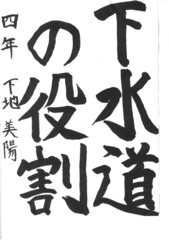 下水道
の役割
四年 下地 美陽